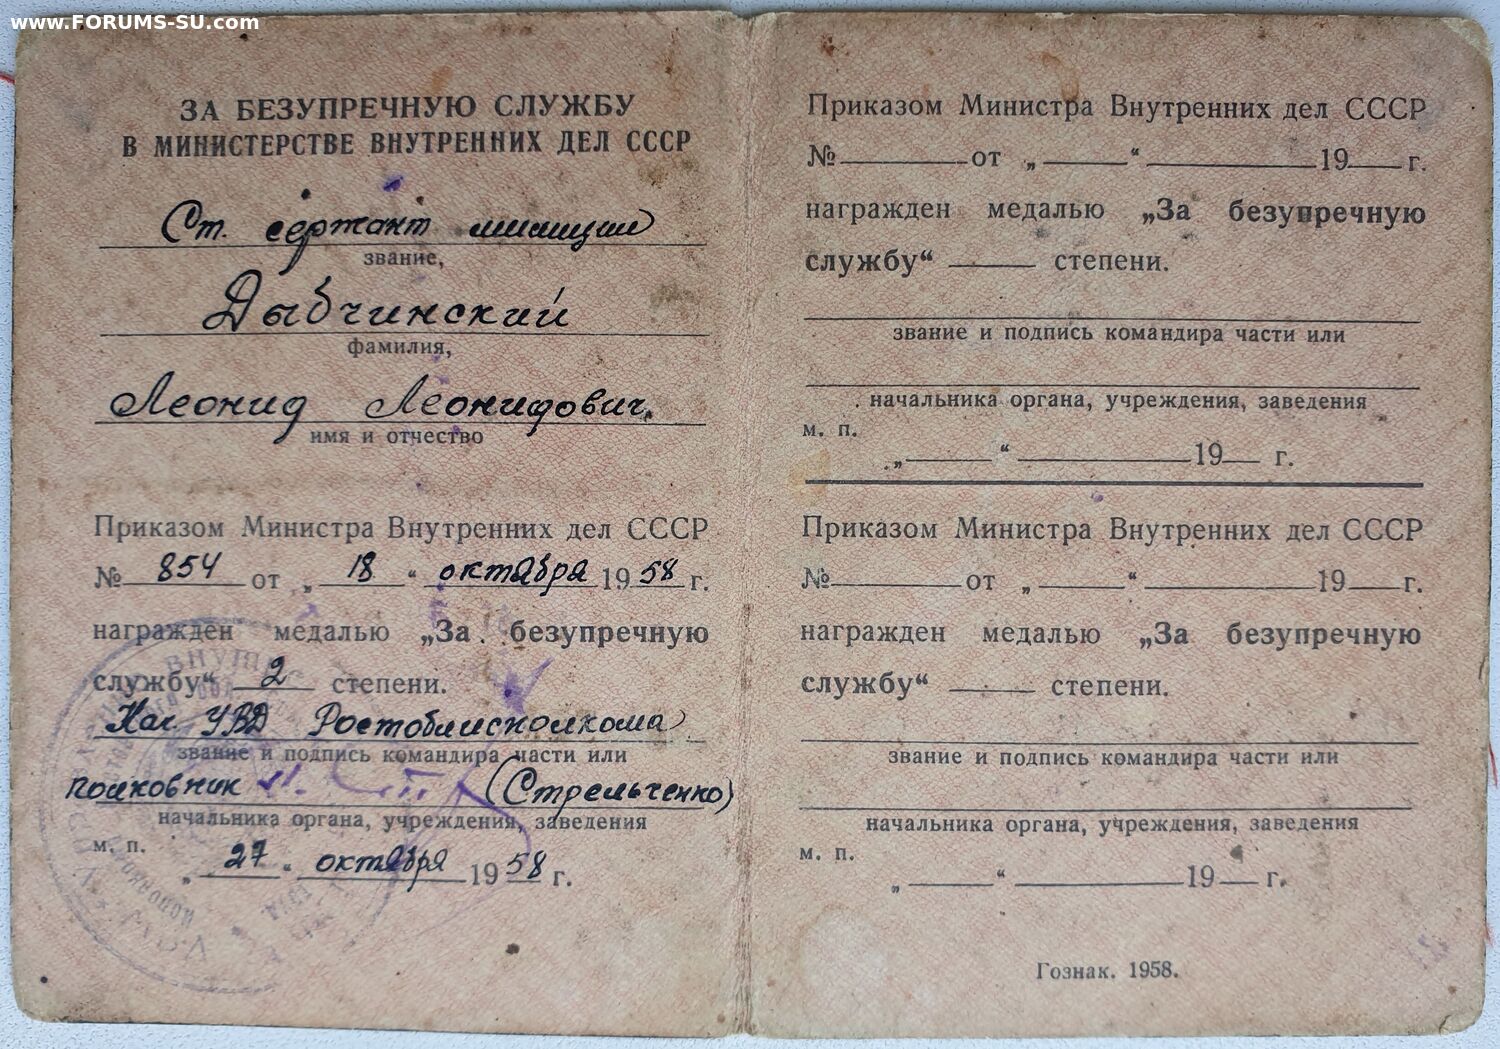 www.FORUMS-SU.com
ЗА БЕЗУПРЕЧНУЮ СЛУЖБУ
В МИНИСТЕРСТВЕ ВНУТРЕННИХ ДЕЛ СССР
Ст. сержант милиции
звание,
Дыбчинский
фамилия,
Леонид Леонидович
имя и отчество
Приказом Министра Внутренних дел СССР
№ 854 от „ 18 “ октября 19 58 г.
награжден медалью „За безупречную
службу“ 2 степени.
Нач. УВД Ростоблисполкома
звание и подпись командира части или
полковник (Стрельченко)
начальника органа, учреждения, заведения
м. п.
„ 27 “ октября 19 58 г.
Приказом Министра Внутренних дел СССР
№ от „ “ 19 г.
награжден медалью „За безупречную
службу“ степени.
звание и подпись командира части или
начальника органа, учреждения, заведения
м. п.
„ “ 19 г.
Приказом Министра Внутренних дел СССР
№ от „ “ 19 г.
награжден медалью „За безупречную
службу“ степени.
звание и подпись командира части или
начальника органа, учреждения, заведения
м. п.
„ “ 19 г.
Гознак. 1958.